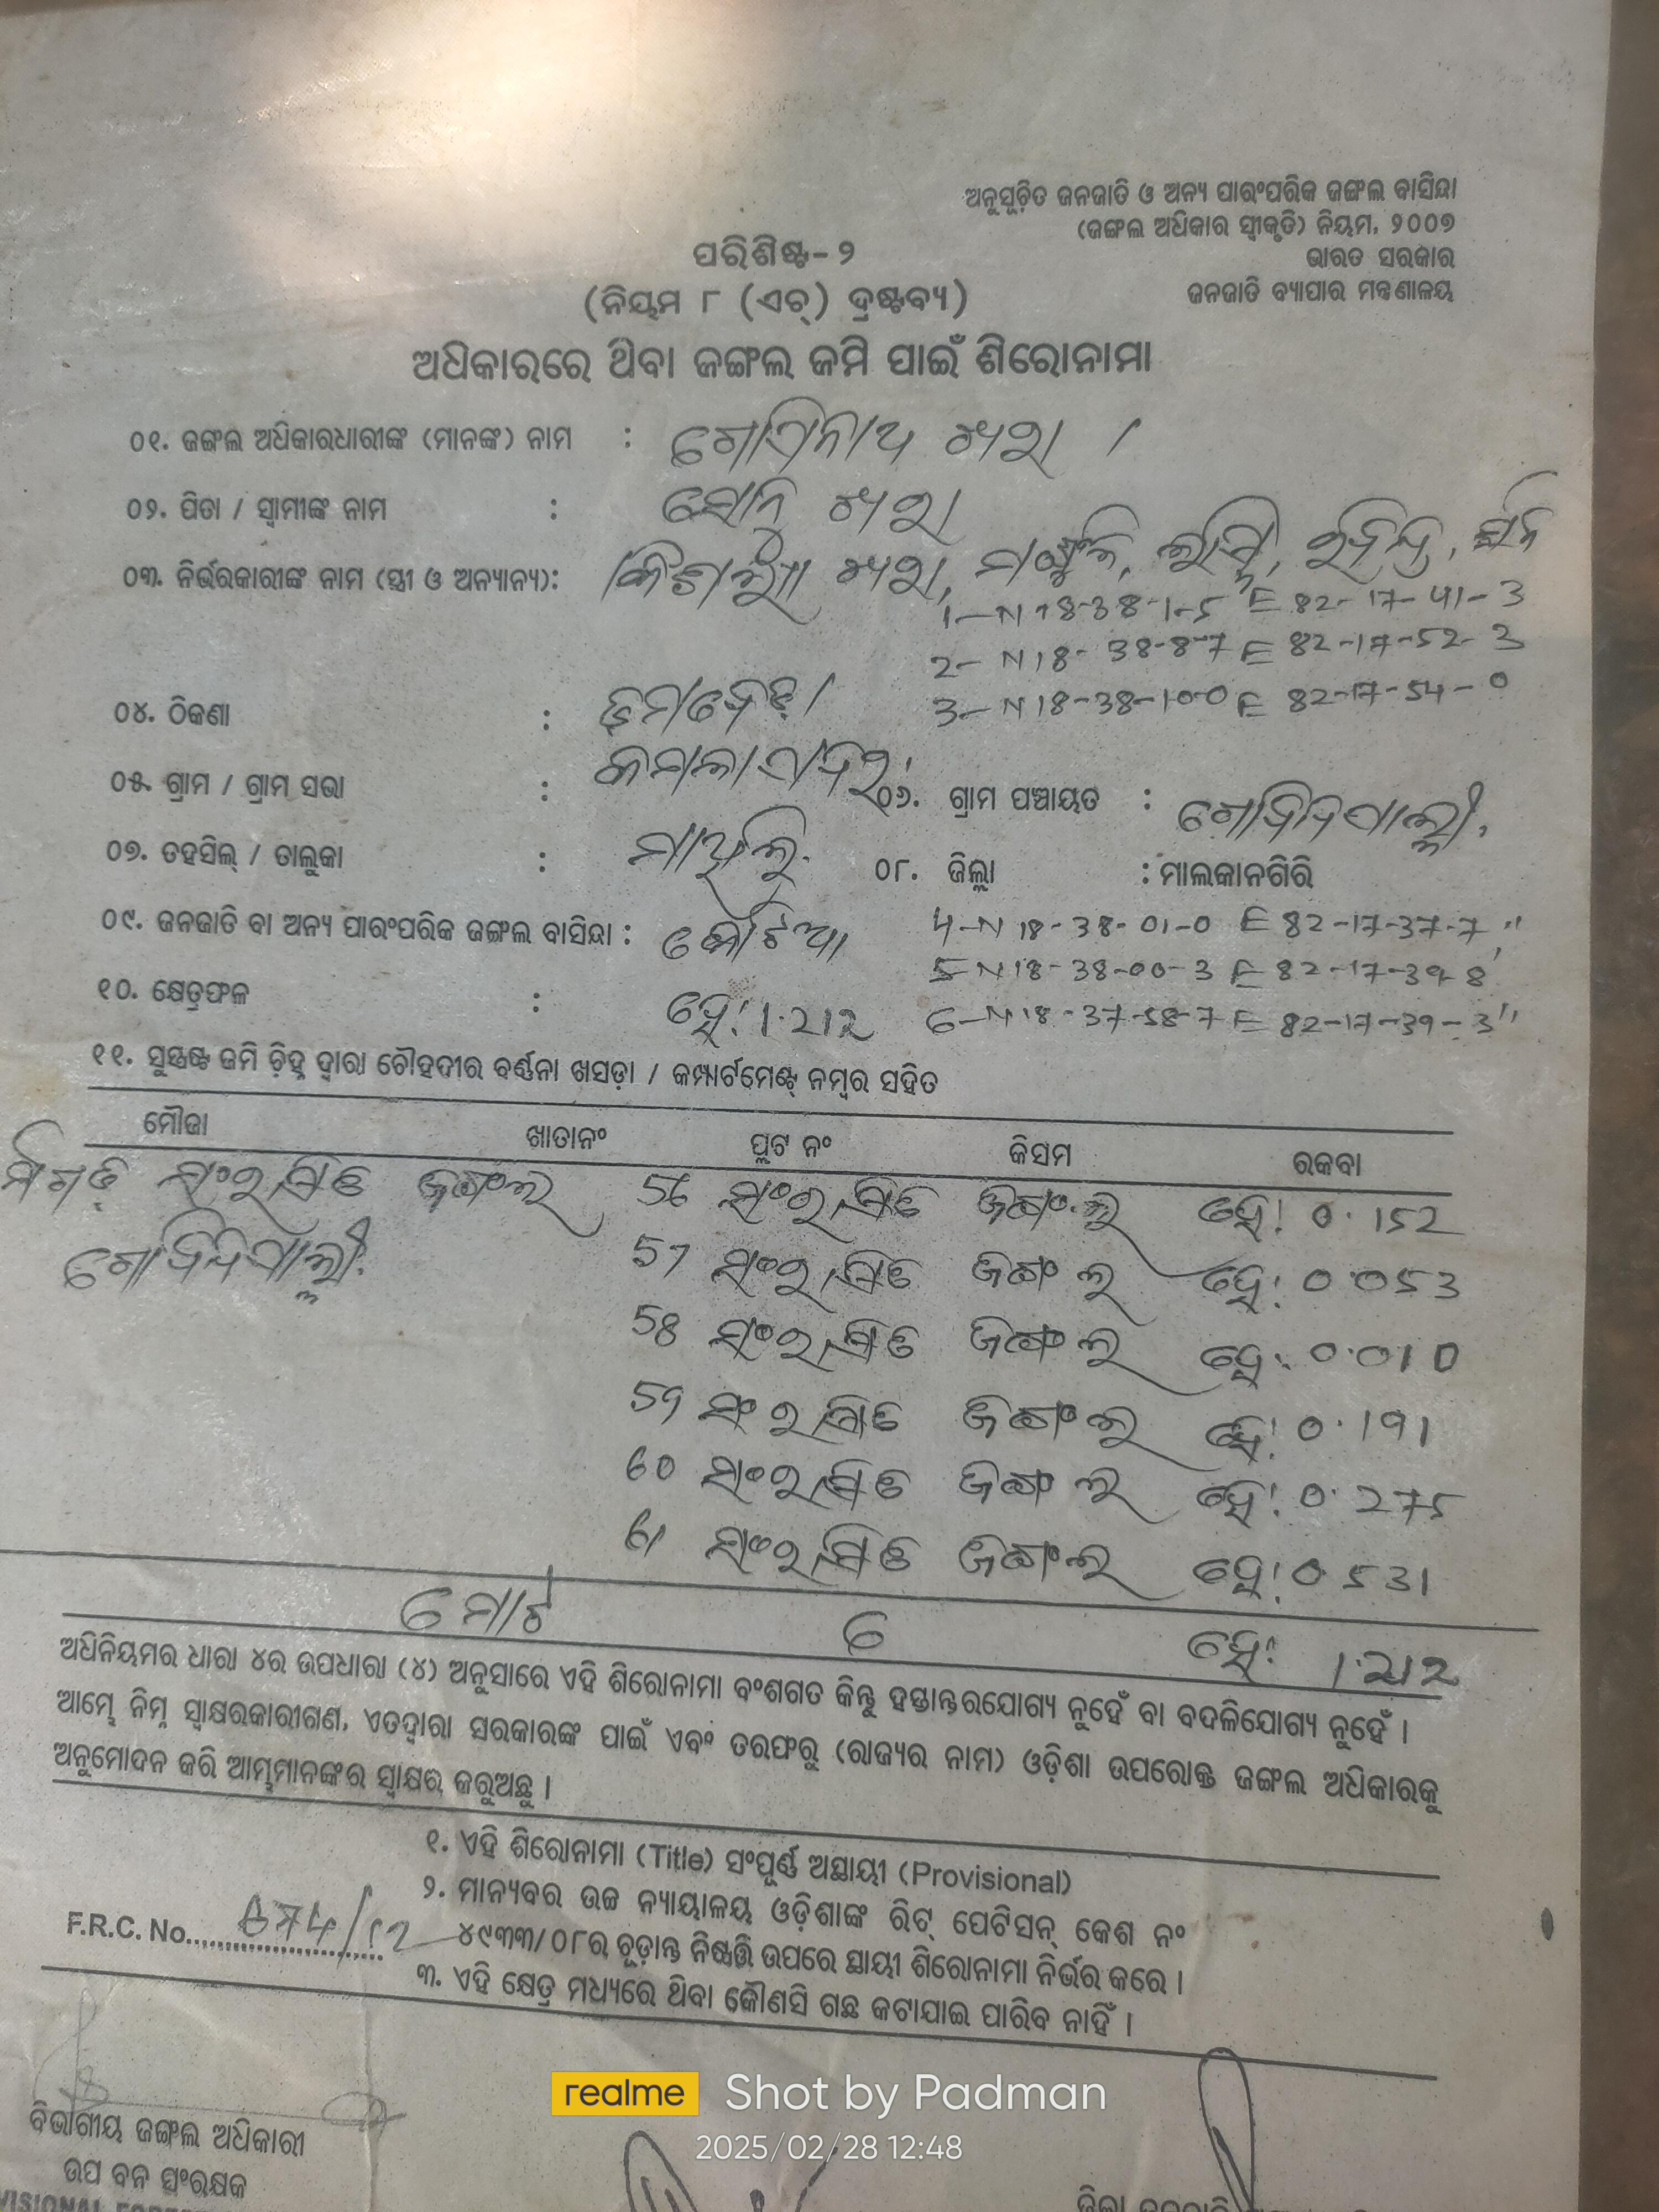 ଅନୁସୂଚିତ ଜନଜାତି ଓ ଅନ୍ୟ ପାରଂପରିକ ଜଙ୍ଗଲ ବାସିନ୍ଦା
(ଜଙ୍ଗଲ ଅଧିକାର ସ୍ୱୀକୃତି) ନିୟମ, ୨୦୦୭
ଭାରତ ସରକାର
ଜନଜାତି ବ୍ୟାପାର ମନ୍ତ୍ରଣାଳୟ
ପରିଶିଷ୍ଟ-୨
(ନିୟମ ୮ (ଏଚ୍) ଦ୍ରଷ୍ଟବ୍ୟ)
ଅଧିକାରରେ ଥିବା ଜଙ୍ଗଲ ଜମି ପାଇଁ ଶିରୋନାମା
୦୧. ଜଙ୍ଗଲ ଅଧିକାରଧାରୀଙ୍କ (ମାନଙ୍କ) ନାମ :
୦୨. ପିତା / ସ୍ୱାମୀଙ୍କ ନାମ :
୦୩. ନିର୍ଭରକାରୀଙ୍କ ନାମ (ସ୍ତ୍ରୀ ଓ ଅନ୍ୟାନ୍ୟ):
1-N 18-38-1-5 E 82-17-41-3
2- N 18- 38-8-7 E 82-17-52-3
3-N 18-38-10-0 E 82-17-54-0
୦୪. ଠିକଣା :
୦୫. ଗ୍ରାମ / ଗ୍ରାମ ସଭା : ୦୬. ଗ୍ରାମ ପଞ୍ଚାୟତ : ଗୋବିନ୍ଦପାଲ୍ଲୀ
୦୭. ତହସିଲ୍ / ତାଲୁକା : ମାଥିଲି ୦୮. ଜିଲ୍ଲା : ମାଲକାନଗିରି
୦୯. ଜନଜାତି ବା ଅନ୍ୟ ପାରଂପରିକ ଜଙ୍ଗଲ ବାସିନ୍ଦା : 4-N 18-38-01-0 E 82-17-37-7"
5-N 18-38-00-3 E 82-17-39-8
୧୦. କ୍ଷେତ୍ରଫଳ : ହେ: 1.212 6-N 18-37-58-7 E 82-17-39-3"
୧୧. ସୁସ୍ପଷ୍ଟ ଜମି ଚିହ୍ନ ଦ୍ୱାରା ଚୌହଦୀର ବର୍ଣ୍ଣନା ଖସଡ଼ା / କମ୍ପାର୍ଟମେଣ୍ଟ୍ ନମ୍ବର ସହିତ
ମୌଜା ଖାତାନଂ ପ୍ଲଟ ନଂ କିସମ ରକବା
ସଂରକ୍ଷିତ ଜଙ୍ଗଲ 56 ସଂରକ୍ଷିତ ଜଙ୍ଗଲ ହେ: 0.152
ଗୋବିନ୍ଦପାଲ୍ଲୀ 57 ସଂରକ୍ଷିତ ଜଙ୍ଗଲ ହେ: 0.053
58 ସଂରକ୍ଷିତ ଜଙ୍ଗଲ ହେ: 0.010
59 ସଂରକ୍ଷିତ ଜଙ୍ଗଲ ହେ: 0.191
60 ସଂରକ୍ଷିତ ଜଙ୍ଗଲ ହେ: 0.275
61 ସଂରକ୍ଷିତ ଜଙ୍ଗଲ ହେ: 0.531
ମୋଟ 6 ହେ: 1.212
ଅଧିନିୟମର ଧାରା ୪ର ଉପଧାରା (୪) ଅନୁସାରେ ଏହି ଶିରୋନାମା ବଂଶଗତ କିନ୍ତୁ ହସ୍ତାନ୍ତରଯୋଗ୍ୟ ନୁହେଁ ବା ବଦଳିଯୋଗ୍ୟ ନୁହେଁ ।
ଆମ୍ଭେ ନିମ୍ନ ସ୍ୱାକ୍ଷରକାରୀଗଣ, ଏତଦ୍ୱାରା ସରକାରଙ୍କ ପାଇଁ ଏବଂ ତରଫରୁ (ରାଜ୍ୟର ନାମ) ଓଡ଼ିଶା ଉପରୋକ୍ତ ଜଙ୍ଗଲ ଅଧିକାରକୁ
ଅନୁମୋଦନ କରି ଆମ୍ଭମାନଙ୍କର ସ୍ୱାକ୍ଷର କରୁଅଛୁ ।
୧. ଏହି ଶିରୋନାମା (Title) ସଂପୂର୍ଣ୍ଣ ଅସ୍ଥାୟୀ (Provisional)
୨. ମାନ୍ୟବର ଉଚ୍ଚ ନ୍ୟାୟାଳୟ ଓଡ଼ିଶାଙ୍କ ରିଟ୍ ପେଟିସନ୍ କେଶ ନଂ
F.R.C. No. ୪୯୩୩/୦୮ର ଚୂଡ଼ାନ୍ତ ନିଷ୍ପତ୍ତି ଉପରେ ସ୍ଥାୟୀ ଶିରୋନାମା ନିର୍ଭର କରେ ।
୩. ଏହି କ୍ଷେତ୍ର ମଧ୍ୟରେ ଥିବା କୌଣସି ଗଛ କଟାଯାଇ ପାରିବ ନାହିଁ ।
realme Shot by Padman
2025/02/28 12:48
ବିଭାଗୀୟ ଜଙ୍ଗଲ ଅଧିକାରୀ
ଉପ ବନ ସଂରକ୍ଷକ